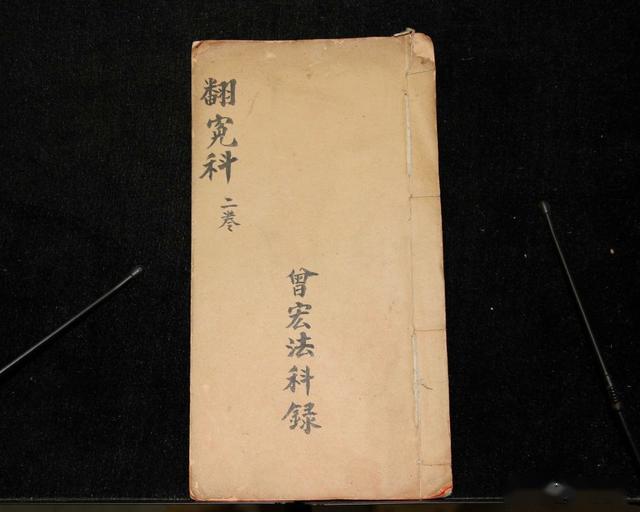 翻寃科 二巻
曾宏法科録